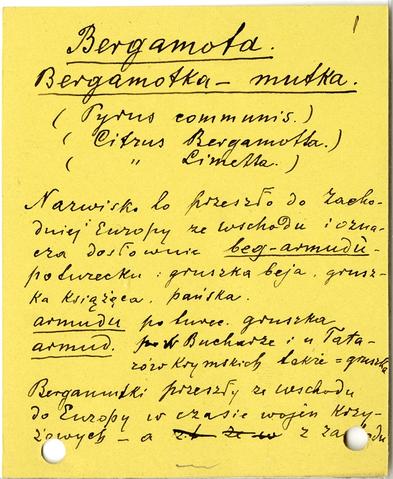 1
Bergamota.
Bergamotka – mutka.
( Pyrus communis. )
( Citrus Bergamotta. )
( " Limetta. )
Nazwisko to przeszło do Zacho-
dniej Europy ze wschodu i ozna-
cza dosłownie beg-armudu-
poturecku : gruszka beja, grusz-
ka książęca, pańska.
armudu po turec. gruszka
armud. w Bucharze i u Tata-
rów Krymskich także = gruszka
Bergamutki przeszły ze wschodu
do Europy w czasie wojen Krzy-
żowych – a z zachodu